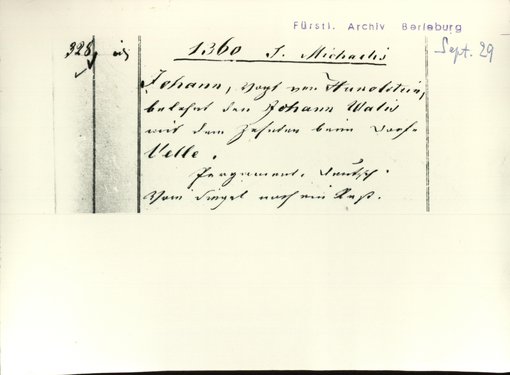 Fürstl. Archiv Berleburg
Sept. 29
328
1360 S. Michaelis
Johann, Vogt von Hunolstein,
belehnt den Johann Walis
mit dem Zehnten beim Dorfe
Velle.
Pergament. Deutsch.
Vom Siegel noch ein Rest.